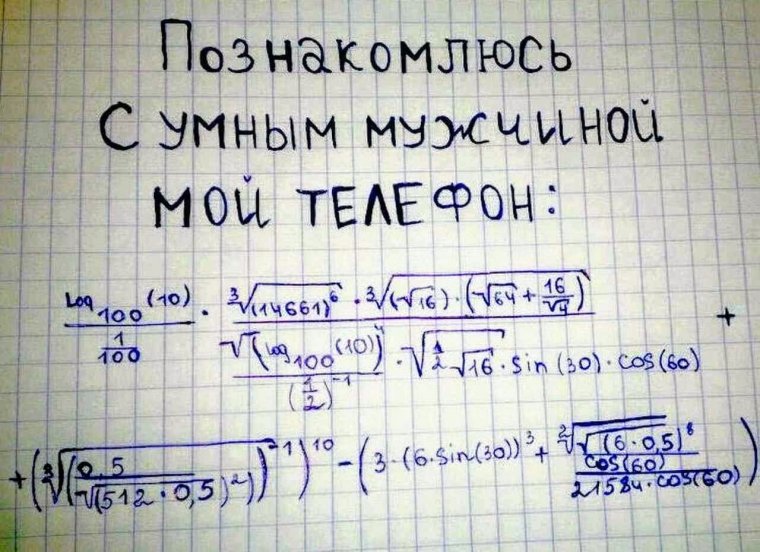 Познакомлюсь
с умным мужчиной
мой телефон:
log₁₀₀(10) / (1/100) · ∛(14661)⁶ · ∛((√16)·(√64 + 16/√4)) / (√(log₁₀₀(10))⁴ / (1/2)⁻¹ · √(1/2 √16) · sin(30) · cos(60)) +
+ (∛(0,5 / √(512·0,5)²)⁻¹)¹⁰ − (3·(6·sin(30))³ + ∛(√(6·0,5)⁸) / cos(60) / 21584·cos(60))